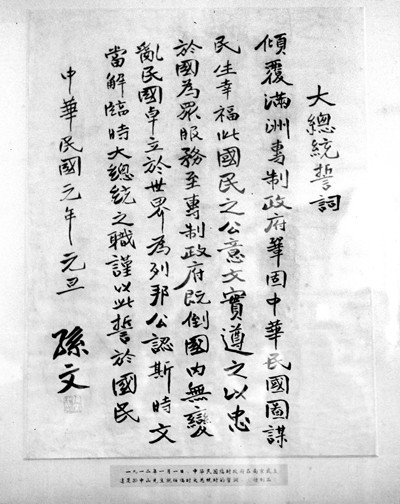 大總統誓詞
傾覆滿洲專制政府鞏固中華民國圖謀
民生幸福此國民之公意文實遵之以忠
於國為眾服務至專制政府既倒國內無變
亂民國卓立於世界為列邦公認斯時文
當解臨時大總統之職謹以此誓於國民
中華民國元年元旦
孫文
一九一二年一月一日，中华民国临时政府在南京成立